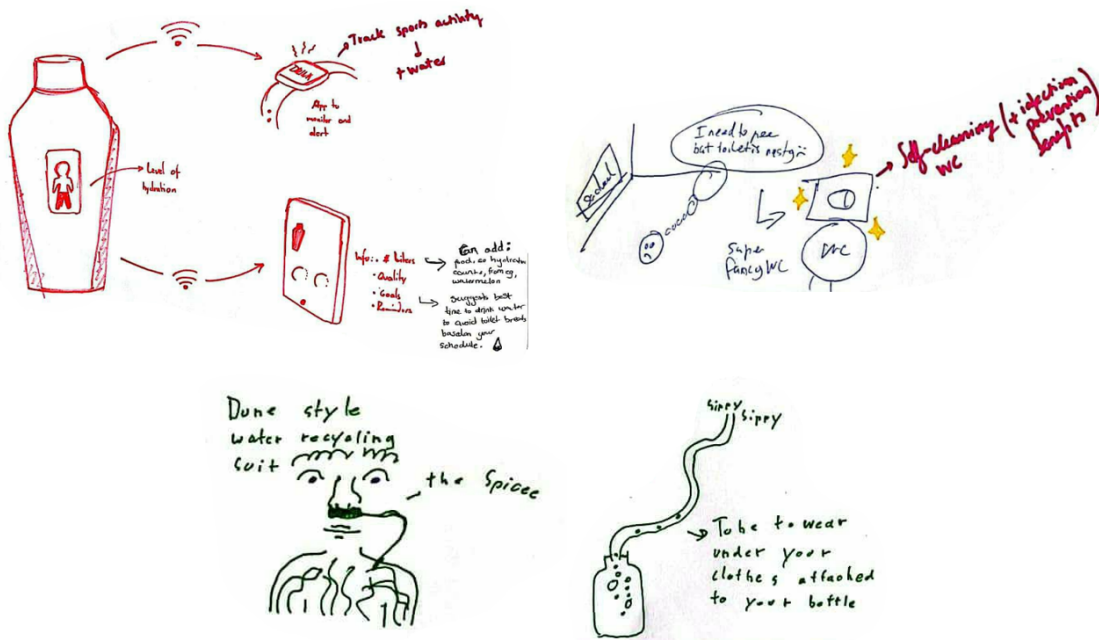 Track sports activity
+ water
DRINK
App to
monitor and
alert
Level of
hydration
Info: • # liters
• Quality
• Goals
• Reminders
Can add:
food, as hydration
counts, from eg,
watermelon
Suggests best
time to drink water
to avoid toilet breaks
based on your
schedule.
I need to pee
but toilet is nasty
School
Super
fancy WC
WC
Self-cleaning (+ infection
WC
prevention
benefits)
Dune style
water recycling
suit
the Spicee
sippy
sippy
Tube to wear
under your
clothes attached
to your bottle